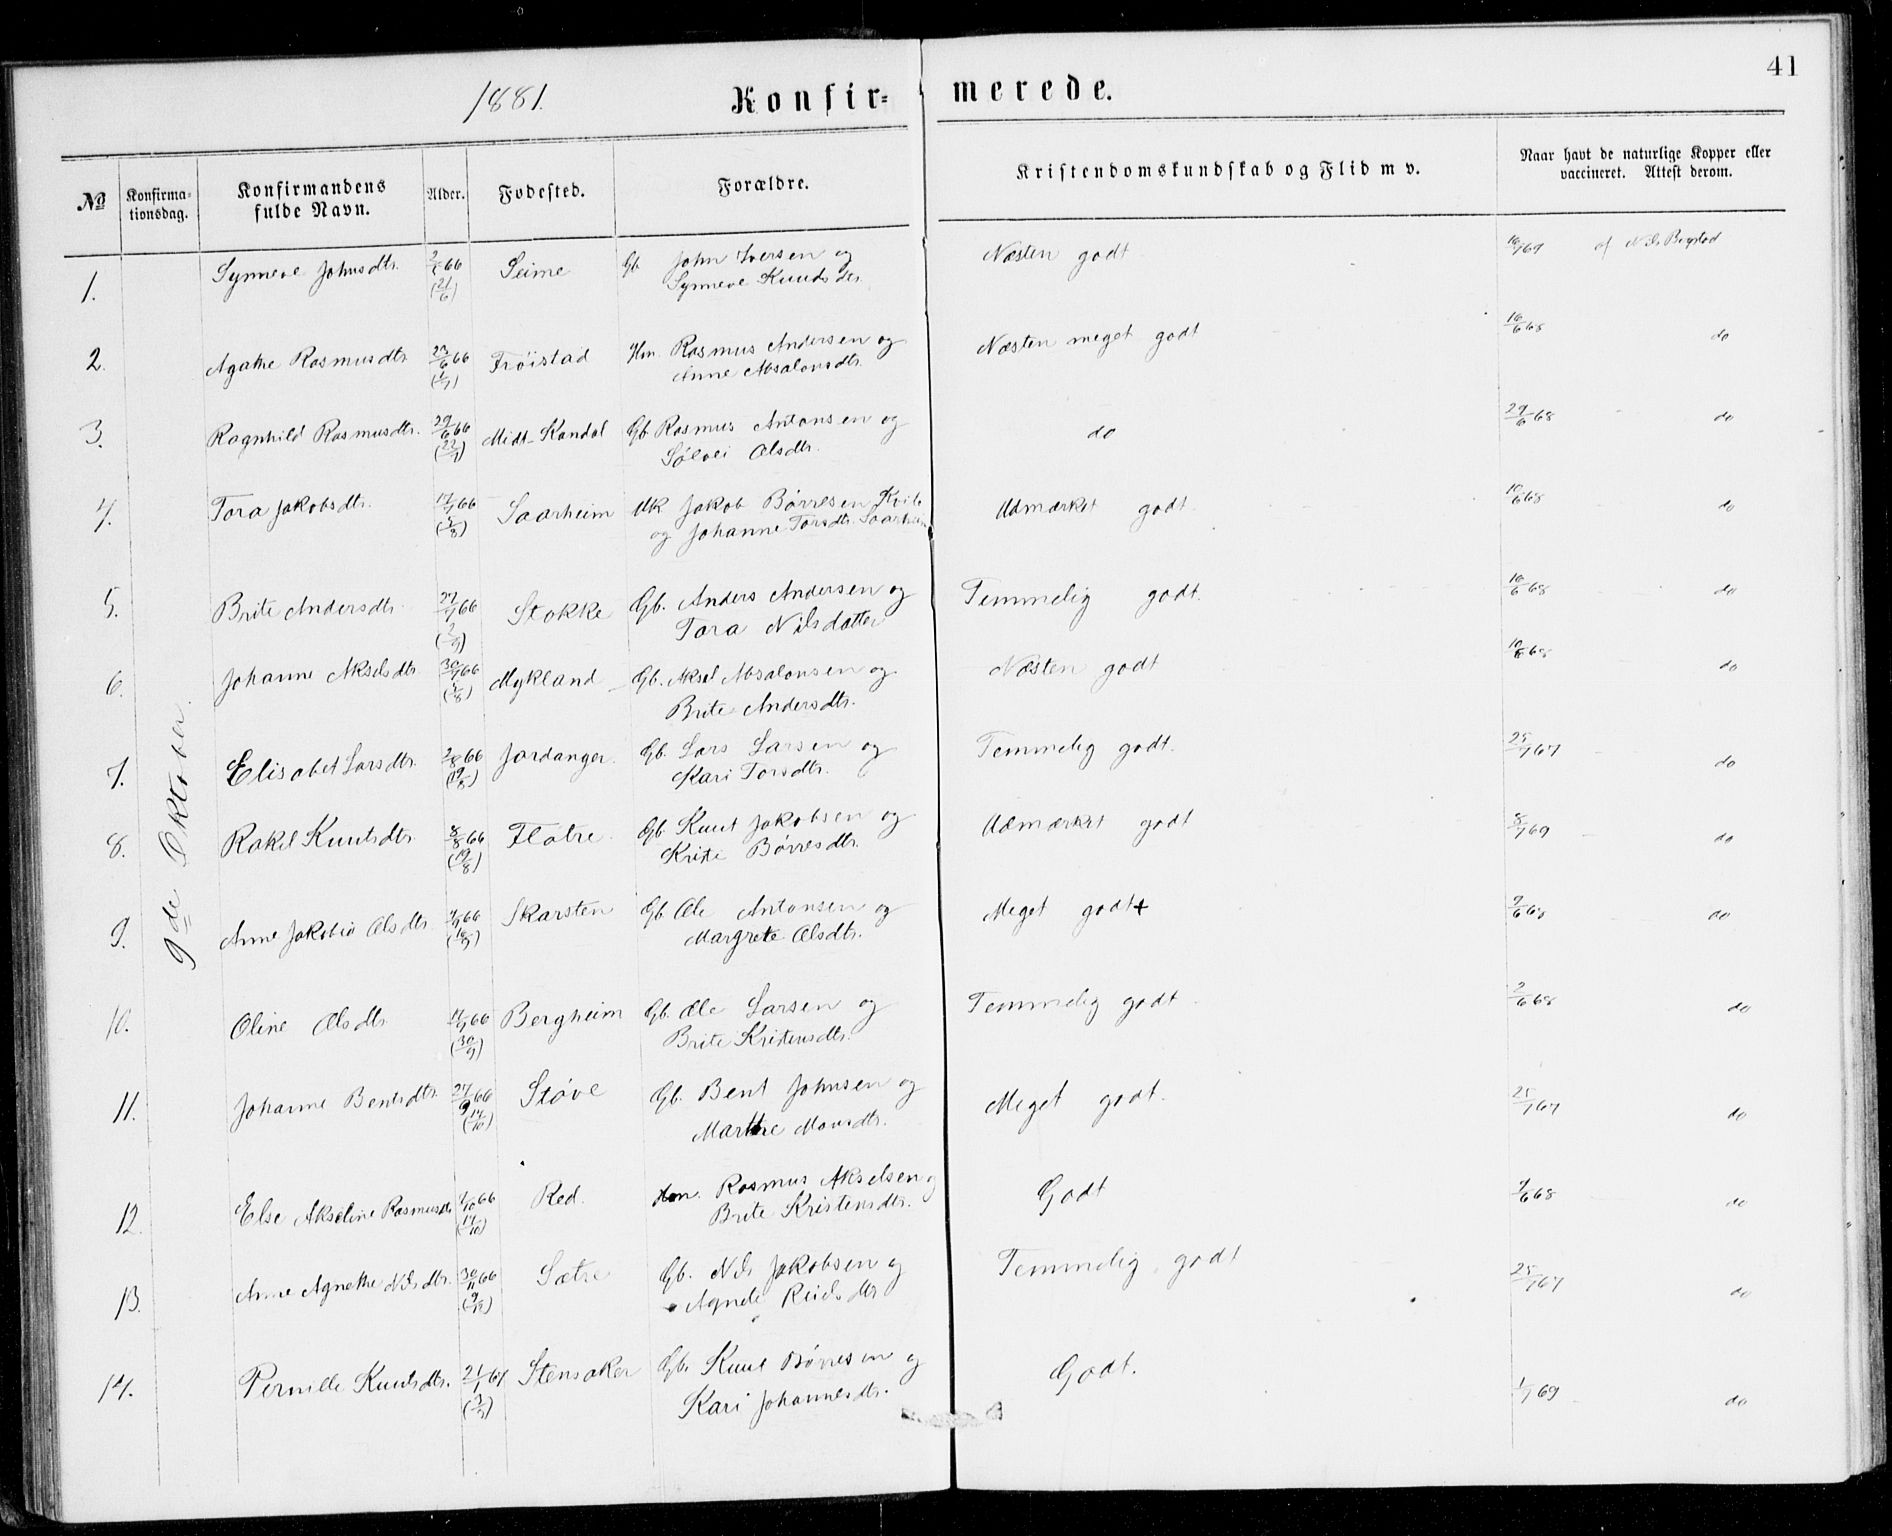 41
1881.
Konfir-
merede.
№
Konfirma-
tionsdag.
Konfirmandens
fulde Navn.
Alder.
Fødested.
Forældre.
Kristendomskundskab og Flid m v.
Naar havt de naturlige Kopper eller
vaccineret. Attest derom.
9de Oktober.
1. Synneve Johnsdtr. Seime Gb John Iversen og
Synneve Knudsdtr. Næsten godt af Nils Bogstad
2. Agathe Rasmusdtr 66 Frøistad Hm. Rasmus Andersen og
Anne Absalonsdtr. Næsten meget godt 68 do
3. Ragnhild Rasmusdtr. 29/6 66 Midt-Kandal Gb Rasmus Antonsen og
Sølvei Olsdtr. do 29/6 68 do
4. Tora Jakobsdtr. 66 Saarheim Uk Jakob Børresen Kvile
og Johanne Torsdtr. Saarheim Udmærket godt. 68 do
5. Brite Andersdtr. 66 Stokke Gb. Anders Andersen og
Tora Nilsdatter Temmelig godt. 68 do
6. Johanne Akselsdtr 66 Mykland Gb. Aksel Absalonsen og
Brite Andersdtr. Næsten godt 68 do
7. Elisabet Larsdtr. 66 Jordanger. Gb. Lars Larsen og
Kari Torsdtr. Temmelig godt. 67 do
8. Rakel Knutsdtr. 8/8 66
(19/8) Flatre Gb Knut Jakobsen og
Kristi Børresdtr. Udmærket godt 69 do
9. Anne Jakobia Olsdtr. 66 Skarsten Gb Ole Antonsen og
Margrete Olsdtr. Meget godt+ 68 do
10. Oline Olsdtr. 66
(30/9) Bergheim Gb. Ole Larsen og
Brite Kristensdtr. Temmelig godt. 2/6 68 do
11. Johanne Bentsdtr. 27/9 66
(14/10) Støve Gb. Bent Johnsen og
Marthe Monsdtr. Meget godt. 67 do
12. Else Akseline Rasmusdtr 66 Red. Hm. Rasmus Akselsen og
Brite Kristensdtr. Godt 68 do
13. Anne Agnethe Nilsdtr. 30/11 66 Sætre Gb. Nils Jakobsen og
Agnete Dtr Temmelig godt 67 do
14. Pernille Knutsdtr. 21/1 67 Stensaker Gb. Knut Børresen og
Kari Johannesdtr. Godt. 69 do